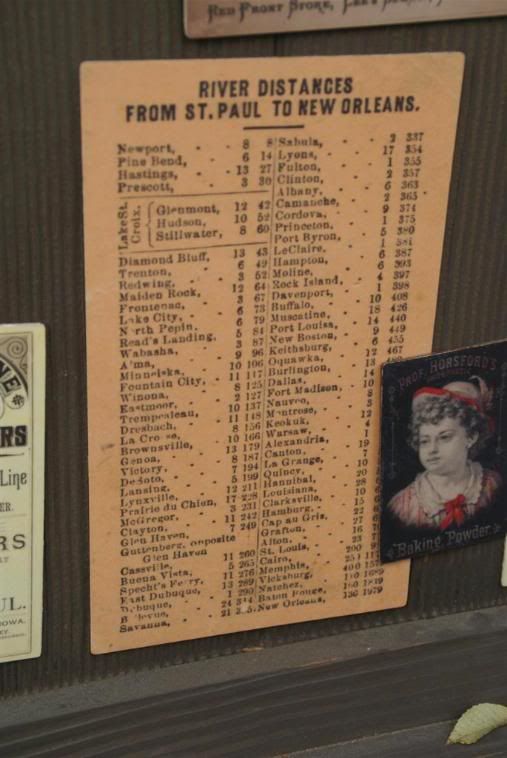 RED FRONT STORE,
RIVER DISTANCES
FROM ST. PAUL TO NEW ORLEANS.
Newport, 8 8
Pine Bend, 6 14
Hastings, 13 27
Prescott, 3 30
Lake St. Croix.
Glenmont, 12 42
Hudson, 10 52
Stillwater, 8 60
Diamond Bluff, 13 43
Trenton, 6 49
Redwing, 3 52
Maiden Rock, 12 64
Frontenac, 3 67
Lake City, 6 73
North Pepin, 6 79
Read's Landing, 5 84
Wabasha, 3 87
Alma, 9 96
Minneiska, 10 106
Fountain City, 11 117
Winona, 8 125
Eastmoor, 2 127
Trempealeau, 10 137
Dresbach, 11 148
La Crosse, 8 156
Brownsville, 10 166
Genoa, 13 179
Victory, 8 187
DeSoto, 7 194
Lansing, 5 199
Lynxville, 12 211
Prairie du Chien, 17 228
McGregor, 3 231
Clayton, 11 242
Glen Haven, 7 249
Guttenberg, opposite
Glen Haven
Cassville, 11 260
Buena Vista, 5 265
Specht's Ferry, 11 276
East Dubuque, 13 289
Dubuque, 1 290
Bellevue, 24 314
Savanna, 21 335
Sabula, 2 337
Lyons, 17 354
Fulton, 1 355
Clinton, 2 357
Albany, 6 363
Camanche, 2 365
Cordova, 9 374
Princeton, 1 375
Port Byron, 5 380
LeClaire, 1 381
Hampton, 6 387
Moline, 6 393
Rock Island, 4 397
Davenport, 1 398
Buffalo, 10 408
Muscatine, 18 426
Port Louisa, 14 440
New Boston, 9 449
Keithsburg, 6 455
Oquawka, 12 467
Burlington, 13
Dallas, 10
Fort Madison, 8
Nauvoo,
Montrose, 3
Keokuk, 12
Warsaw, 4
Alexandria, 1
Canton, 19
La Grange, 7
Quincy, 10
Hannibal, 20
Louisiana, 28
Clarksville, 10
Hamburg, 15
Cap au Gris, 22
Grafton, 27
Alton, 16
St. Louis, 23
Cairo, 200
Memphis,
Vicksburg, 400
Natchez,
Baton Rouge,
New Orleans, 1979
PROF. HORSFORD'S
Baking Powder.
NE
RS
Line
ER.
RS
UL.